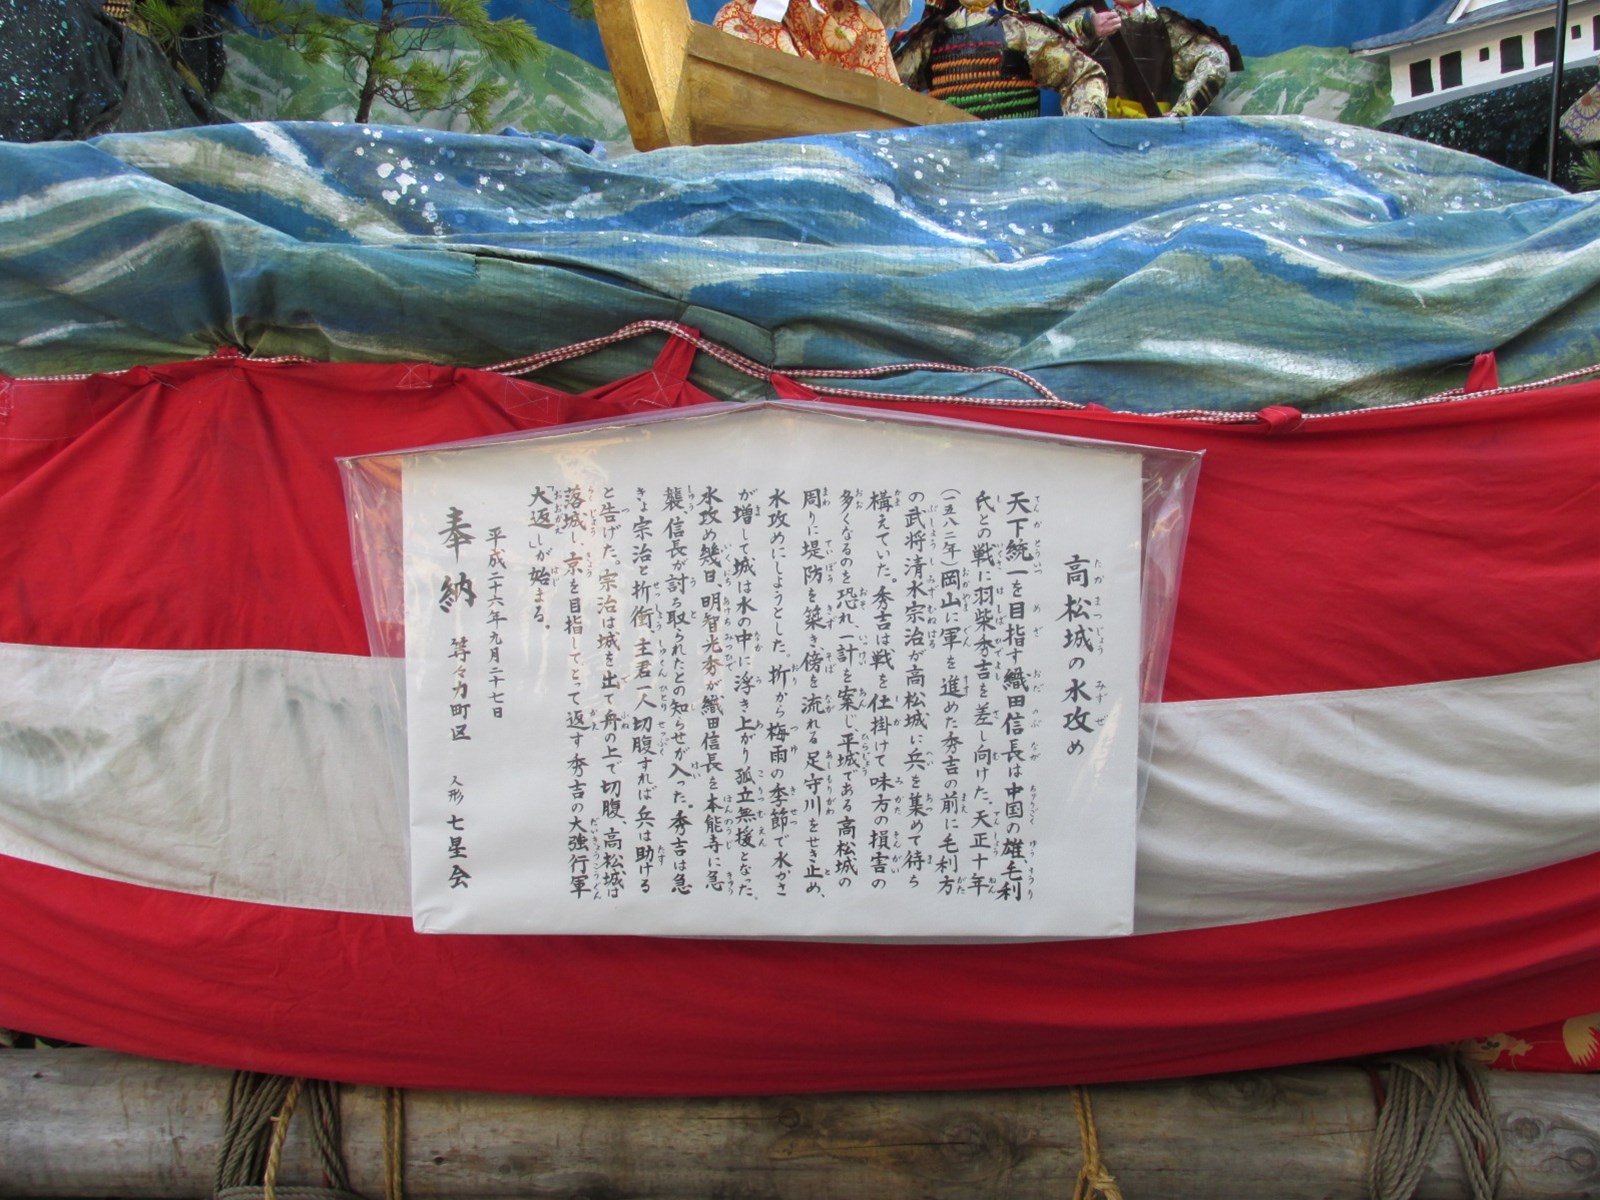 高松城の水攻め
天下統一を目指す織田信長は中国の雄、毛利
氏との戦に羽柴秀吉を差し向けた。天正十年
(一五八二年)岡山に軍を進めた秀吉の前に毛利方
の武将清水宗治が高松城に兵を集めて待ち
構えていた。秀吉は戦を仕掛けて味方の損害の
多くなるのを恐れ、一計を案じ、平城である高松城の
周りに堤防を築き傍を流れる足守川をせき止め、
水攻めにしようとした。折から梅雨の季節で水かさ
が増して城は水の中に浮き上がり孤立無援となった。
水攻め幾日、明智光秀が織田信長を本能寺に急
襲、信長が討ち取られたとの知らせが入った。秀吉は急
きょ宗治と折衝、主君一人切腹すれば兵は助ける
と告げた。宗治は城を出て舟の上で切腹、高松城は
落城し、京を目指してとって返す秀吉の大強行軍
「大返し」が始まる。
平成二十六年九月二十七日
奉納 等々力町区 人形 七星会